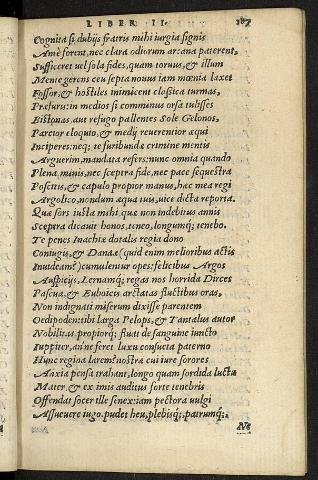 LIBER II. 187
Cognita si dubijs fratris mihi iurgia signis
Antè forent, nec clara odiorum arcana paterent,
Sufficeret uel sola fides, quam toruus, & illum
Mente gerens ceu septa nouus iam mœnia laxet
Fossor, & hostiles inimicent classica turmas,
Præfuris: in medios si comminus orsa tulisses
Bistonas, aut refugo pallentes Sole Gelonos,
Parcior eloquio, & medij reuerentior æqui
Inciperes: neq; te furibundæ crimine mentis
Arguerim, mandata refers: nunc omnia quando
Plena minis, nec sceptra fide, nec pace sequestra
Poscitis, & capulo propior manus, hæc mea regi
Argolico, nondum æqua tuis, uice dicta reporta.
Quæ sors iusta mihi, quæ non indebitus annis
Sceptra dicauit honos, teneo, longumq; tenebo.
Te penes Inachiæ dotalis regia dono
Coniugis, & Danaæ (quid enim melioribus actis
Inuideam?) cumulentur opes: felicibus Argos
Auspicijs, Lernamq; regas nos horrida Dirces
Pascua, & Euboicis arctatas fluctibus oras,
Non indignati miserum dixisse parentem
Oedipodem: tibi larga Pelops, & Tantalus autor
Nobilitas, propiorq; fluat de sanguine iuncto
Iuppiter, an ne feret luxu consueta paterno
Hunc regina larem? nostræ cui iure sorores
Anxia pensa trahant, longo quam sordida luctu
Mater, & ex imis auditus forte tenebris
Offendat sacer ille senex: iam pectora uulgi
Assueuere iugo. pudet heu, plebisq; patrumq;.
Ne